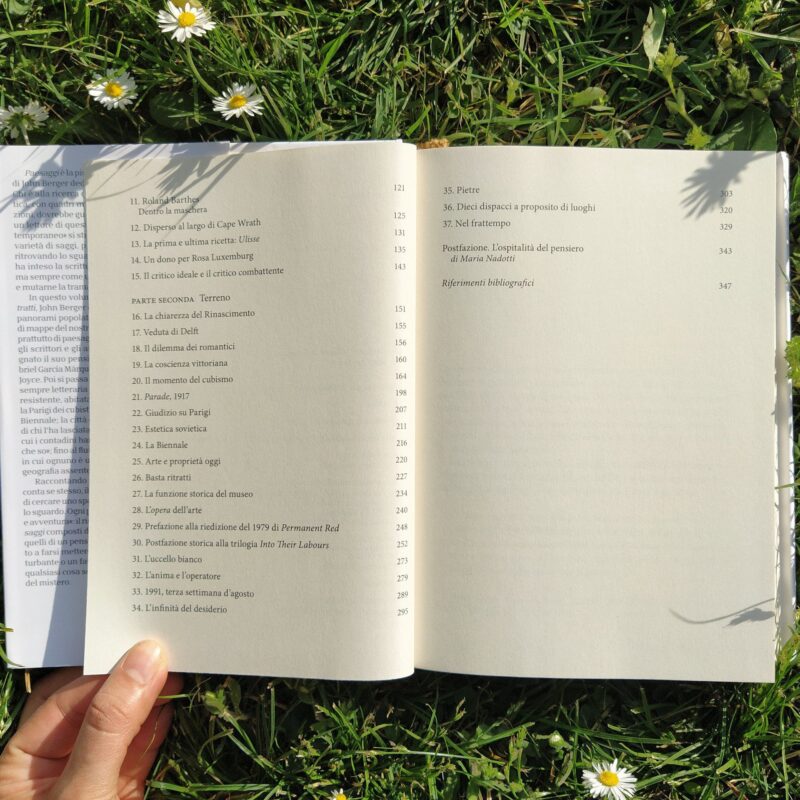 Paesaggi è la
di John Berger
Chi è alla ricerca
tica, con
zioni, dovrebbe
un lettore di
temporaneo» si
varietà di saggi,
ritrovando lo
ha inteso la
ma sempre come
e mutarne la
In questo
tratti, John Berger
panorami
di mappe del
prattutto di
gli scrittori e gli
gnato il suo
briel García
Joyce. Poi si passa
sempre letteraria
resistente,
la Parigi dei
Biennale; la città
di chi l'ha lasciata
cui i contadini
che so»; fino al
in cui ognuno è
geografia assente
Raccontando
conta se stesso, il
di cercare uno
lo sguardo. Ogni
e avventura»: il
saggi composti
quelli di un
to a farsi mettere
turbante o un
qualsiasi cosa
del mistero
11. Roland Barthes 121
Dentro la maschera
12. Disperso al largo di Cape Wrath 125
13. La prima e ultima ricetta: Ulisse 131
14. Un dono per Rosa Luxemburg 135
15. Il critico ideale e il critico combattente 143
PARTE SECONDA Terreno
16. La chiarezza del Rinascimento 151
17. Veduta di Delft 155
18. Il dilemma dei romantici 156
19. La coscienza vittoriana 160
20. Il momento del cubismo 164
21. Parade, 1917 198
22. Giudizio su Parigi 207
23. Estetica sovietica 211
24. La Biennale 216
25. Arte e proprietà oggi 220
26. Basta ritratti 227
27. La funzione storica del museo 234
28. L'opera dell'arte 240
29. Prefazione alla riedizione del 1979 di Permanent Red 248
30. Postfazione storica alla trilogia Into Their Labours 252
31. L'uccello bianco 273
32. L'anima e l'operatore 279
33. 1991, terza settimana d'agosto 289
34. L'infinità del desiderio 295
35. Pietre 303
36. Dieci dispacci a proposito di luoghi 320
37. Nel frattempo 329
Postfazione. L'ospitalità del pensiero 343
di Maria Nadotti
Riferimenti bibliografici 347